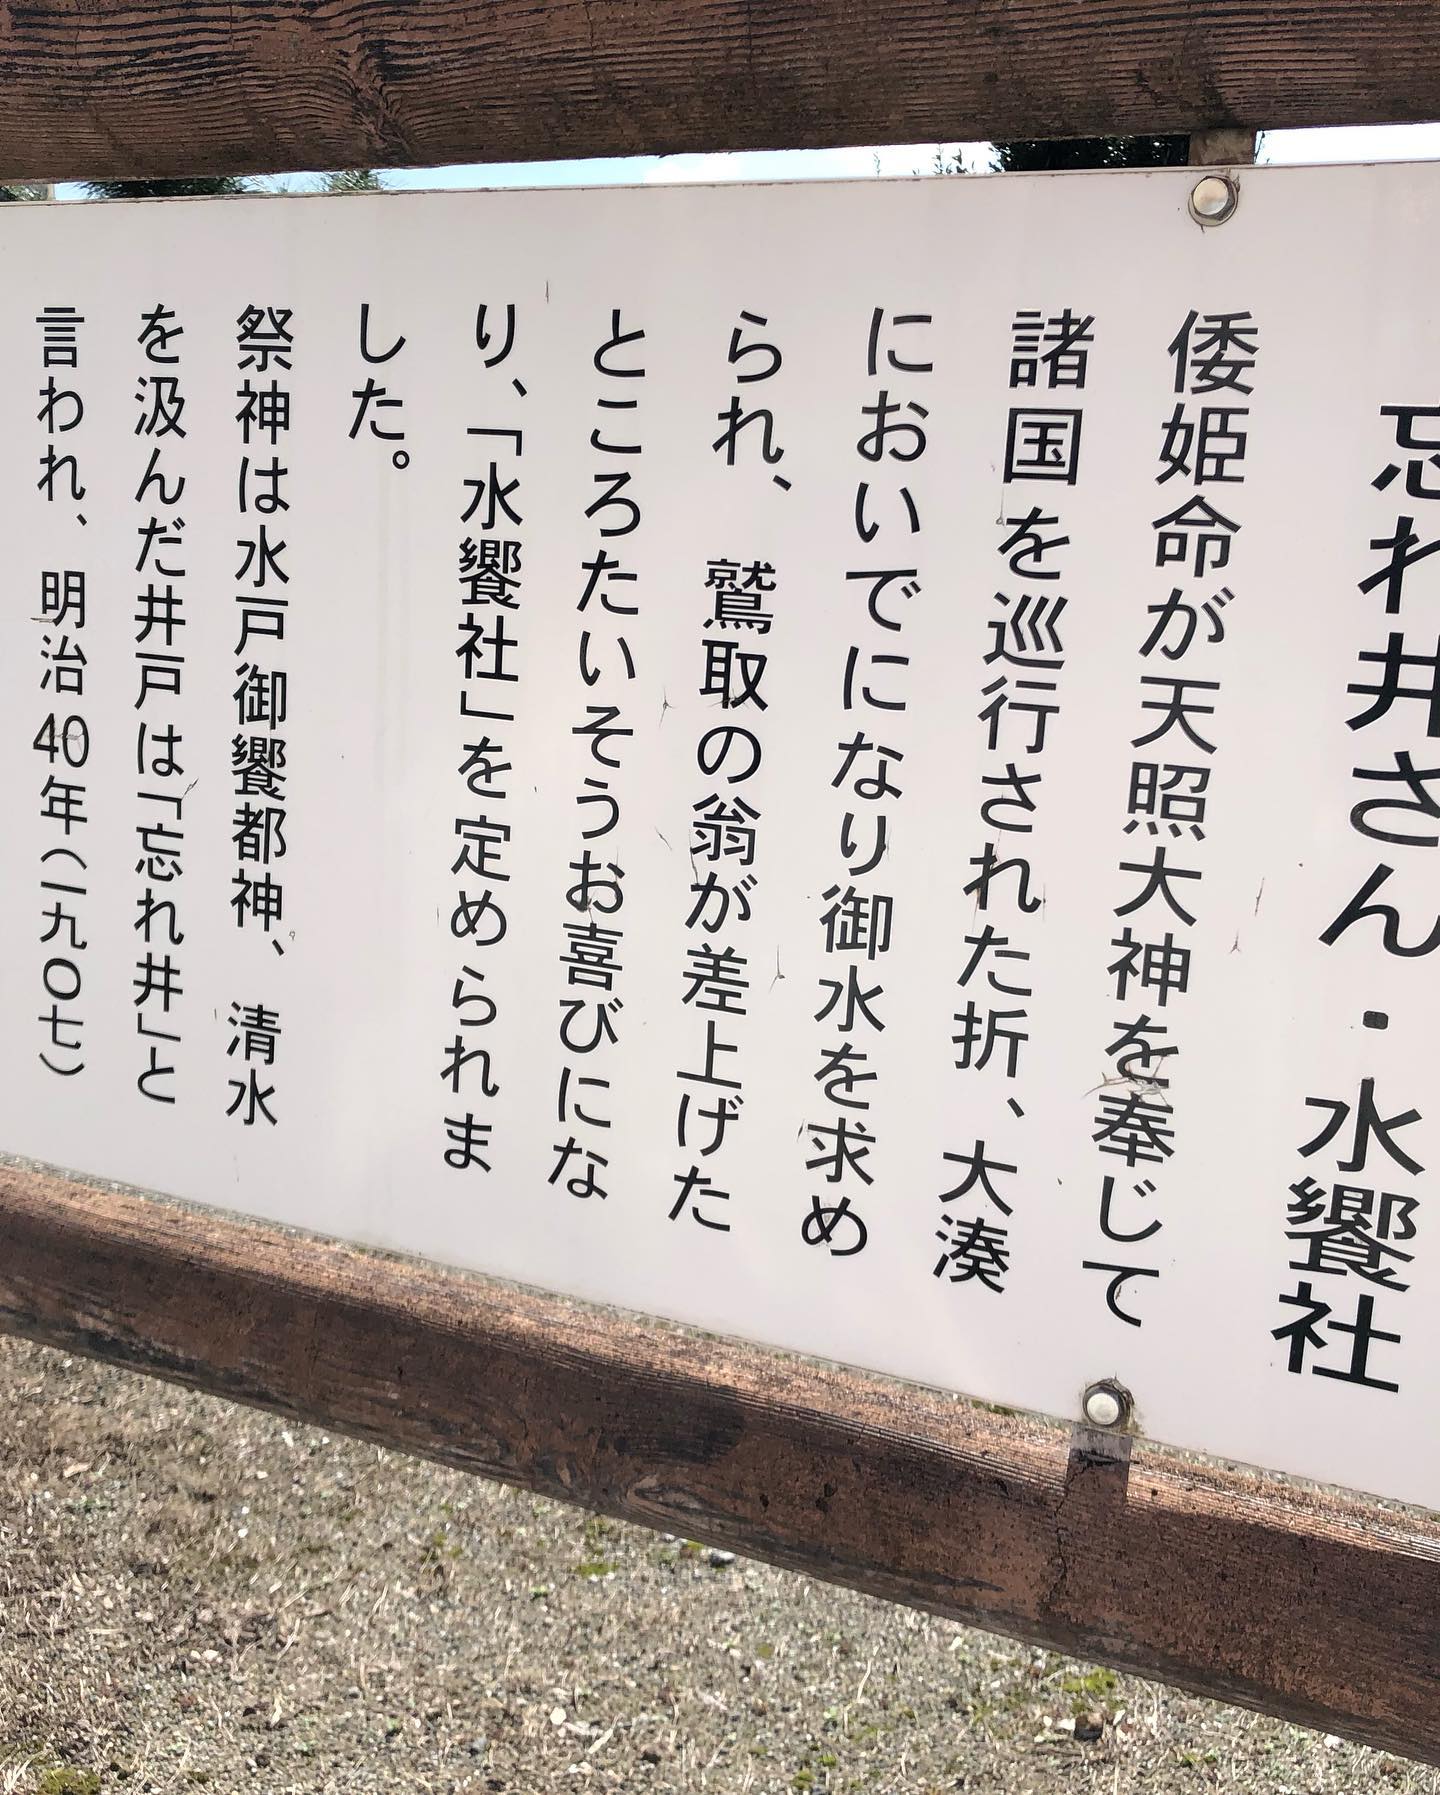 忘れ井さん・水饗社
倭姫命が天照大神を奉じて
諸国を巡行された折、大湊
においでになり御水を求め
られ、鷲取の翁が差上げた
ところたいそうお喜びにな
り、「水饗社」を定められま
した。
祭神は水戸御饗都神、清水
を汲んだ井戸は「忘れ井」と
言われ、明治40年(一九〇七)